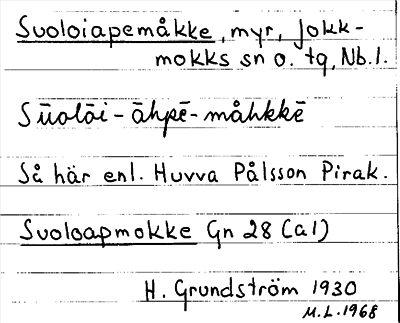 Suoloiapemåkke, myr, Jokk-
mokks sn o. tg, Nb.l.
Sūolōi-āhpē-måhkkē
Så här enl. Huvva Pålsson Pirak.
Suoloapmokke Gn 28 (a1)
H. Grundström 1930
M.L.1968